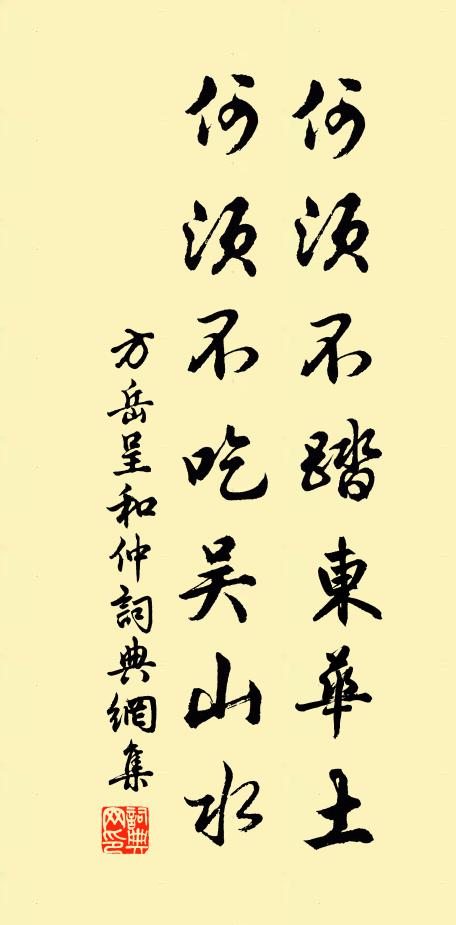 何須不踏東華土
何須不吃吴山水
方岳呈和仲詞典網集
詞典网印